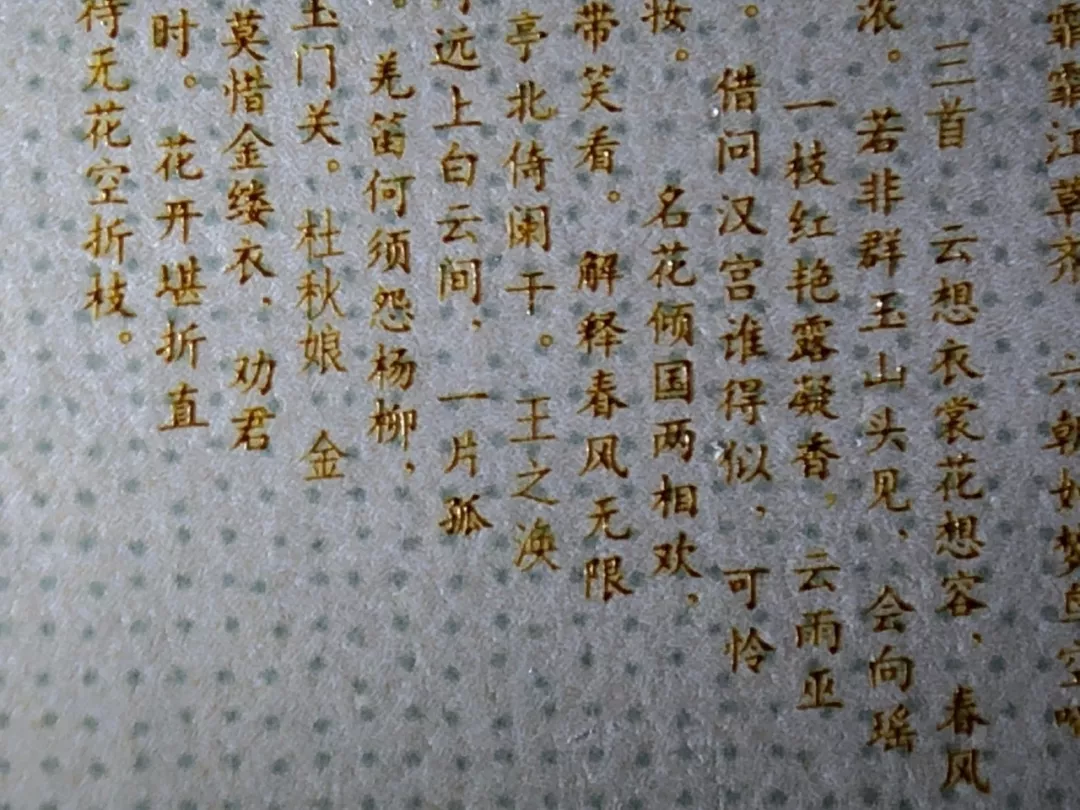 霏霏江草齐 六朝如梦鸟空啼
三首 云想衣裳花想容，春风
浓。若非群玉山头见，会向瑶
一枝红艳露凝香，云雨巫
。借问汉宫谁得似，可怜
妆。 名花倾国两相欢，
带笑看。 解释春风无限
亭北倚阑干。 王之涣
远上白云间，一片孤
。羌笛何须怨杨柳，
玉门关。杜秋娘 金
莫惜金缕衣，劝君
时。花开堪折直
待无花空折枝。